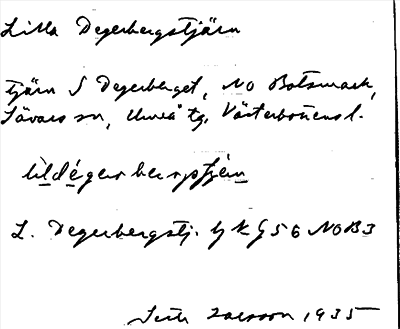 Lilla Degerbergstjärn
tjärn S Degerberget, NO Botsmark,
Sävars sn, Umeå tg, Västerbottens l.
L. Degerbergstj. GK G 56 NO B3
Larsson 1935